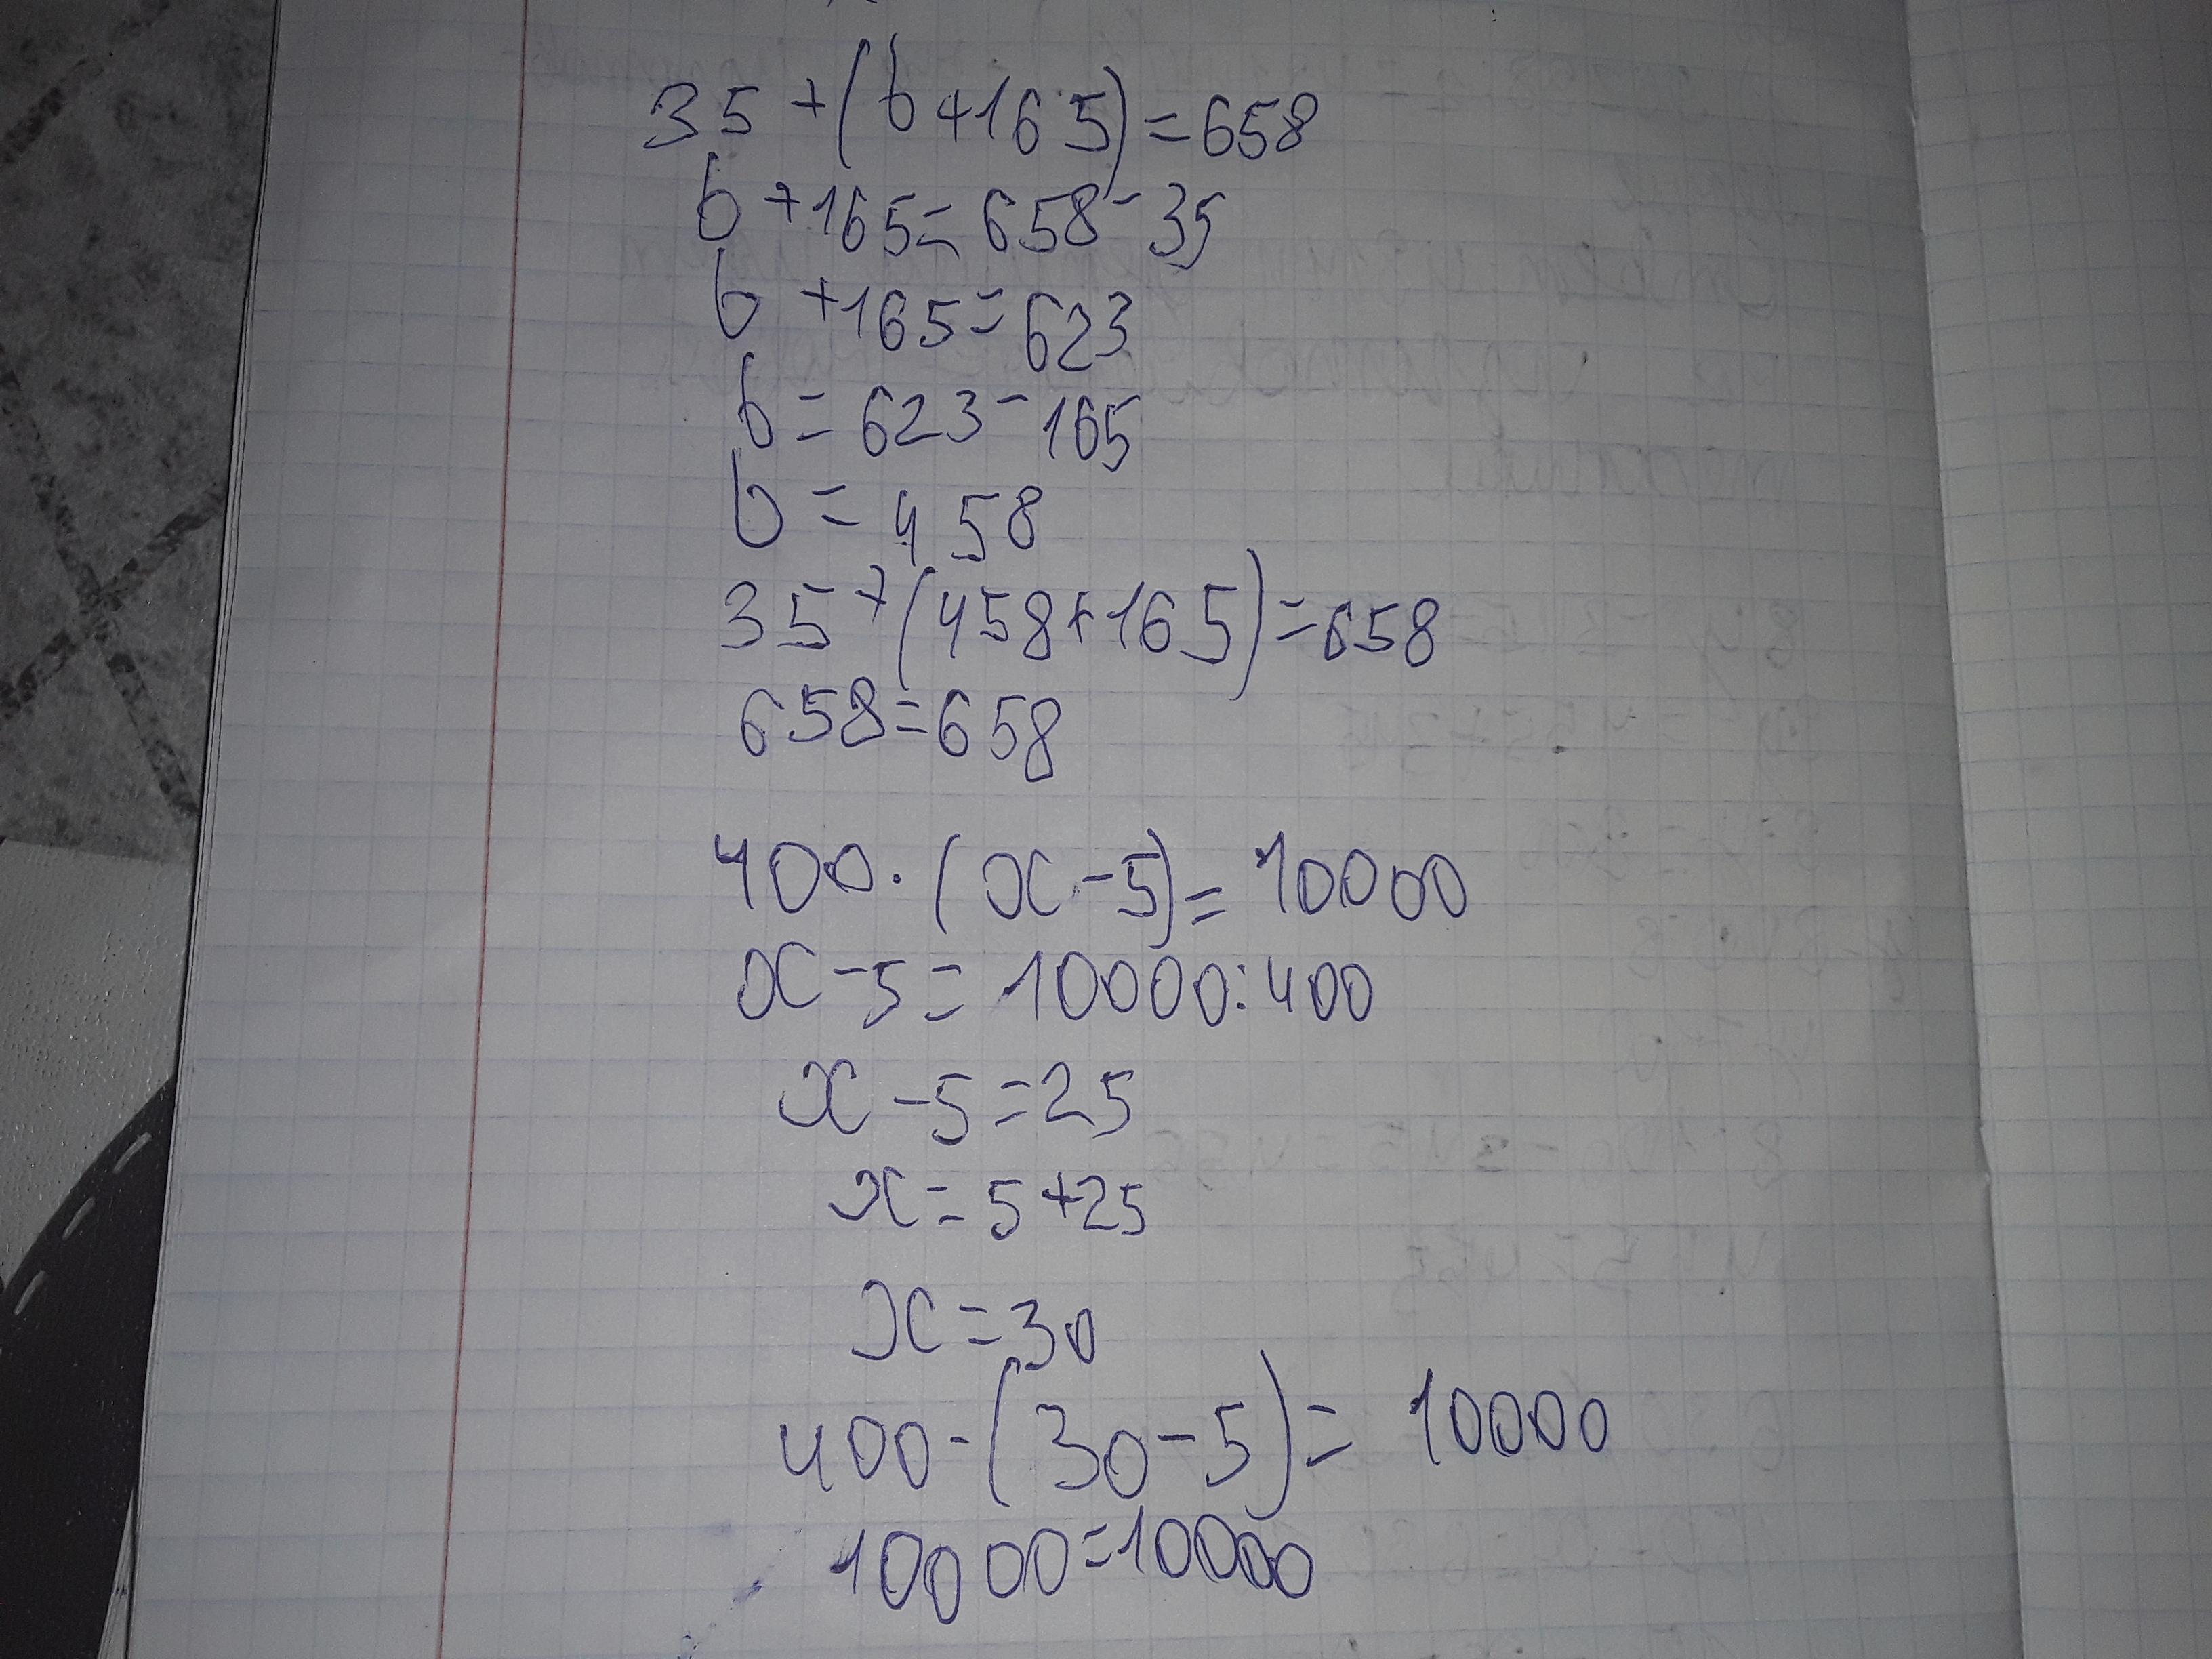 35+(b+165)=658
b+165=658-35
b+165=623
b=623-165
b=458
35+(458+165)=658
658=658
400·(x-5)=10000
x-5=10000:400
x-5=25
x=5+25
x=30
400·(30-5)=10000
10000=10000